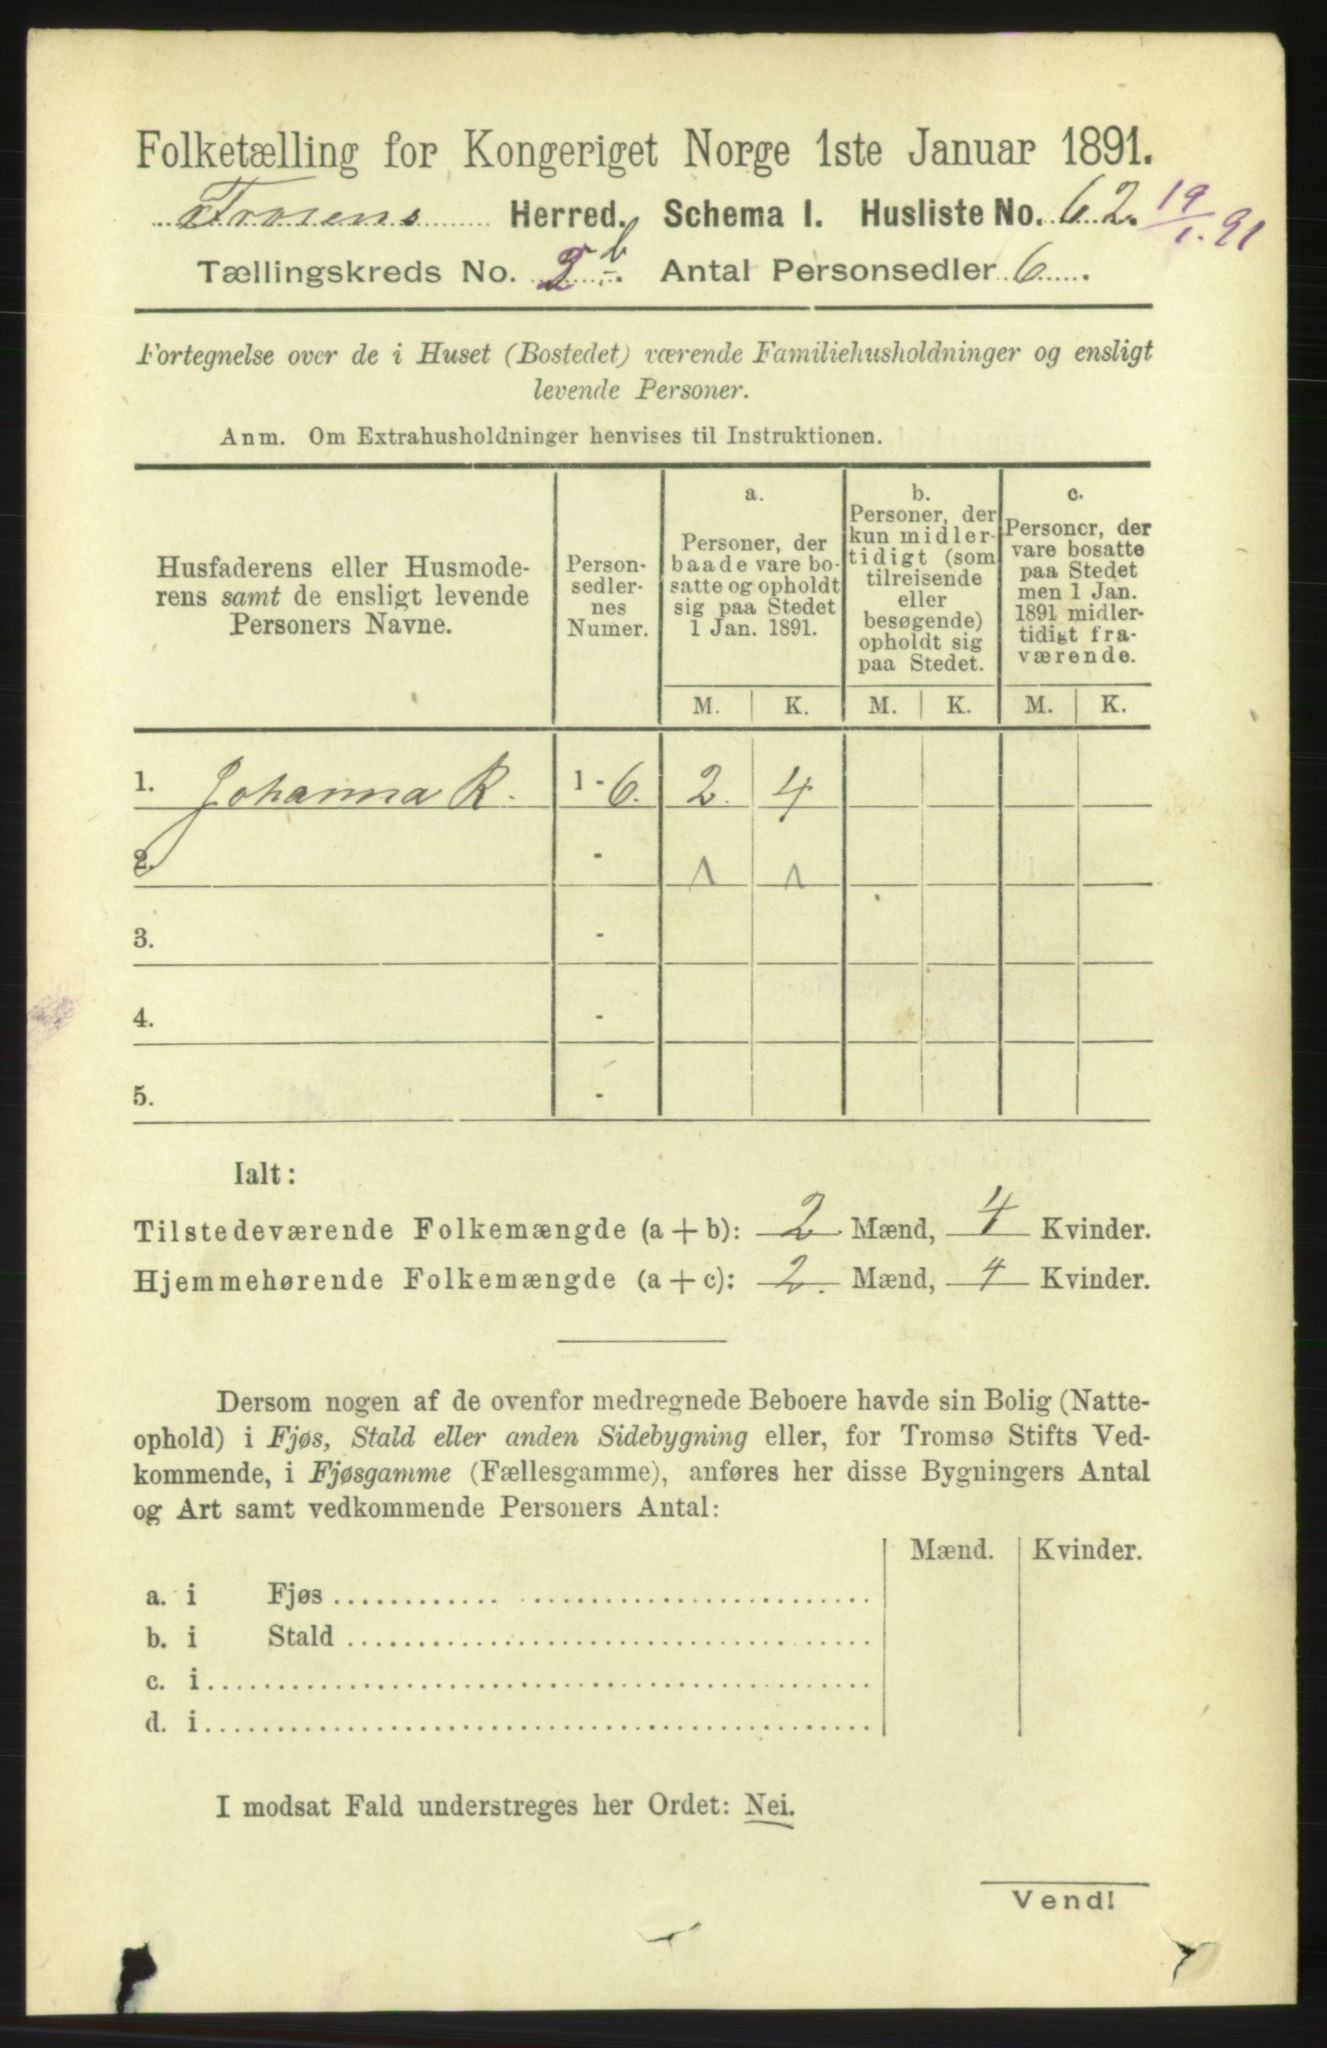 Folketælling for Kongeriget Norge 1ste Januar 1891.
Frosens Herred. Schema I. Husliste No. 62. 19/1.91
Tællingskreds No. 2 b. Antal Personsedler 6.
Fortegnelse over de i Huset (Bostedet) værende Familiehusholdninger og ensligt
levende Personer.
Anm. Om Extrahusholdninger henvises til Instruktionen.
Husfaderens eller Husmode-
rens samt de ensligt levende
Personers Navne.
Person-
sedler-
nes
Numer.
a.
Personer, der
baade vare bo-
satte og opholdt
sig paa Stedet
1 Jan. 1891.
b.
Personer, der
kun midler-
tidigt (som
tilreisende
eller
besøgende)
opholdt sig
paa Stedet.
c.
Personer, der
vare bosatte
paa Stedet
men 1 Jan.
1891 midler-
tidigt fra-
værende.
M. K. M. K. M. K.
1. Johanna R. 1 - 6. 2. 4
2. -
3. -
4. -
5. -
Ialt:
Tilstedeværende Folkemængde (a + b): 2 Mænd, 4 Kvinder.
Hjemmehørende Folkemængde (a + c): 2. Mænd, 4 Kvinder.
Dersom nogen af de ovenfor medregnede Beboere havde sin Bolig (Natte-
ophold) i Fjøs, Stald eller anden Sidebygning eller, for Tromsø Stifts Ved-
kommende, i Fjøsgamme (Fællesgamme), anføres her disse Bygningers Antal
og Art samt vedkommende Personers Antal:
Mænd. Kvinder.
a. i Fjøs
b. i Stald
c. i
d. i
I modsat Fald understreges her Ordet: Nei.
Vend!